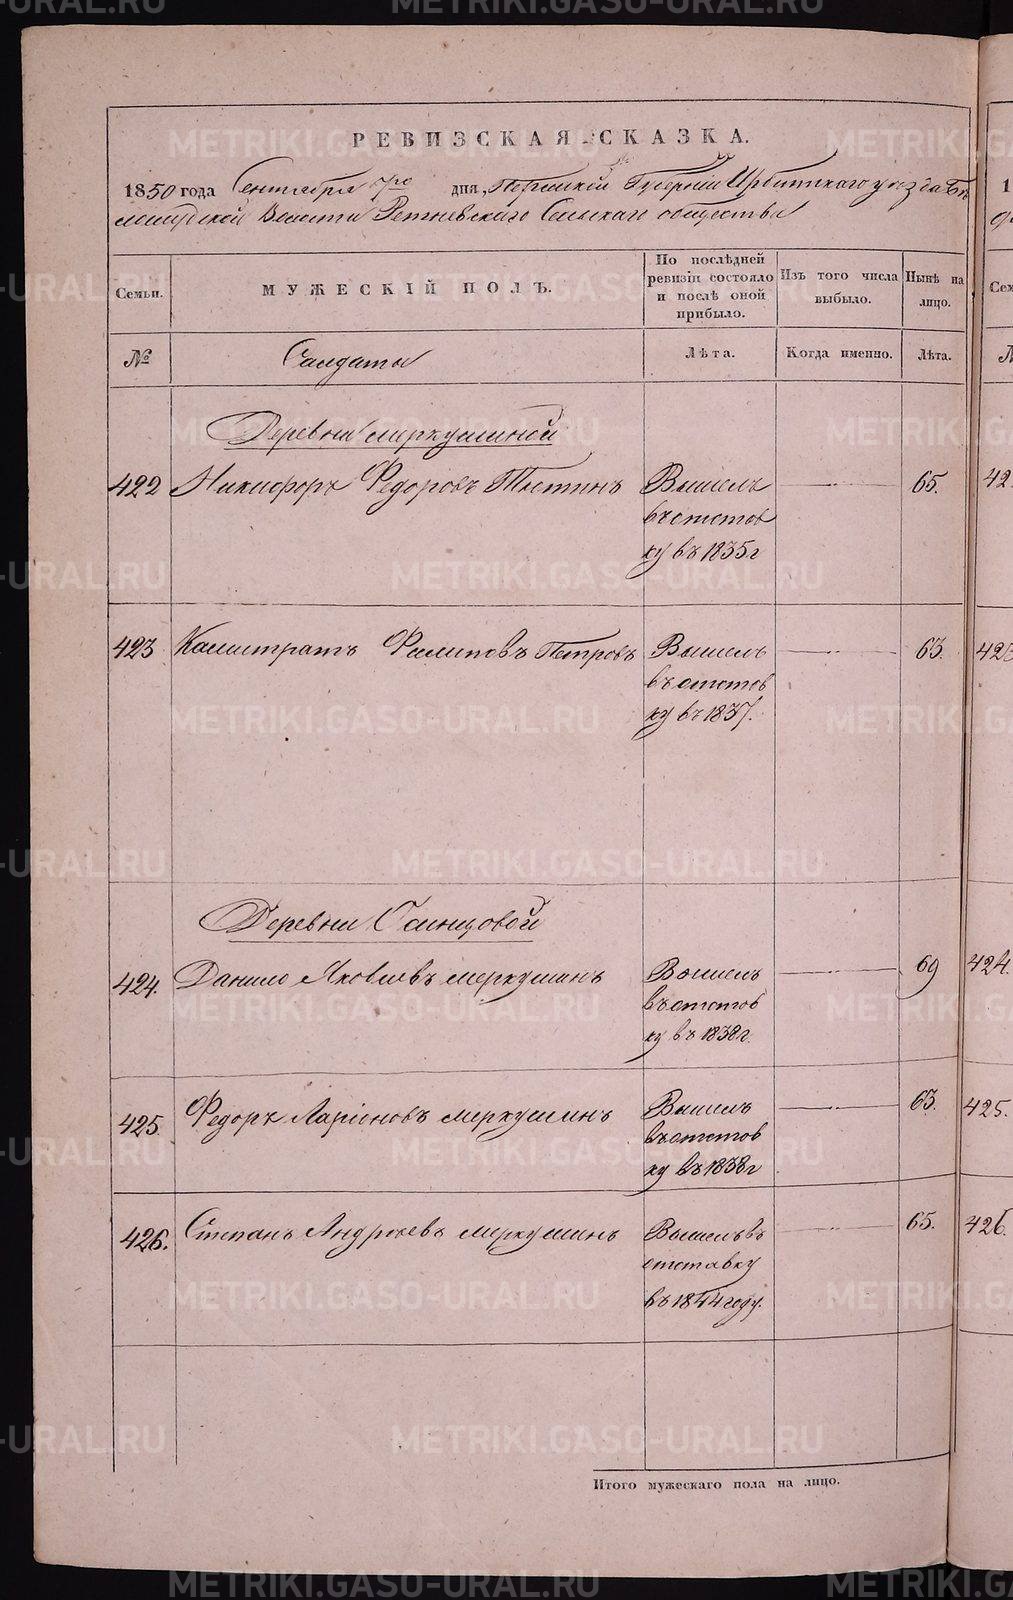 РЕВИЗСКАЯ СКАЗКА.
1850 года Сентября дня, Пермской Губернии Ирбитскаго уезда Бе
лослудской Волости Ретневскаго Сельскаго общества
Семьи.
МУЖЕСКІЙ ПОЛЪ.
По послѣдней ревизіи состояло и послѣ оной прибыло.
Изъ того числа выбыло.
Нынѣ на лицо.
№
Салдаты
Лѣта.
Когда именно.
Лѣта.
Деревни Меркушиной
422 Никифоръ Федоровъ Вышелъ 65.
въ отстов
ку въ 1835 г
423 Калистратъ Филиповъ Петровъ Вышелъ 63.
въ отстов
ку въ 1837.
Деревни Синцовой
424. Данило Яковлевъ Меркушинъ Вышелъ 69
въ отстов
ку въ 1838 г.
425. Федоръ Ларіоновъ Меркушинъ Вышелъ 63.
въ отстов
ку въ 1838 г
426. Степанъ Андреевъ Меркушинъ Вышелъ въ 65.
отставку
въ 1844 году.
Итого мужескаго пола на лицо.
424.
425.
426.
METRIKI.GASO-URAL.RU